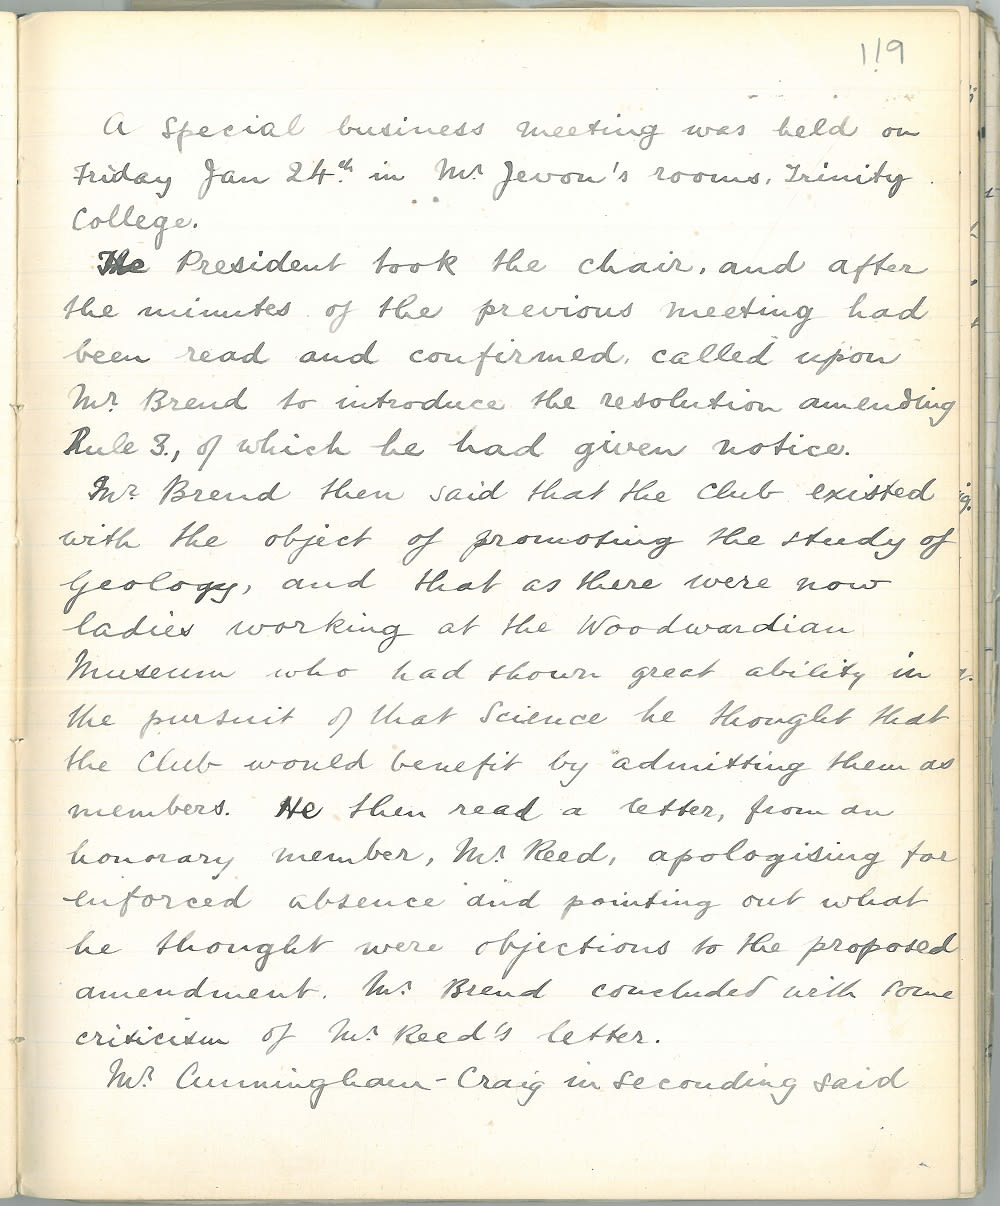 119
A Special business meeting was held on
Friday Jan 24.th in Mr Jevon's rooms, Trinity
College.
The President took the chair, and after
the minutes of the previous meeting had
been read and confirmed, called upon
Mr Brend to introduce the resolution amending
Rule 3., of which he had given notice.
Mr Brend then said that the Club existed
with the object of promoting the study of
Geology, and that as there were now
ladies working at the Woodwardian
Museum who had shown great ability in
the pursuit of that Science he thought that
the Club would benefit by admitting them as
members. He then read a letter, from an
honorary member, Mr Reed, apologising for
enforced absence and pointing out what
he thought were objections to the proposed
amendment. Mr Brend concluded with some
criticism of Mr Reed's letter.
Mr Cunningham-Craig in seconding said